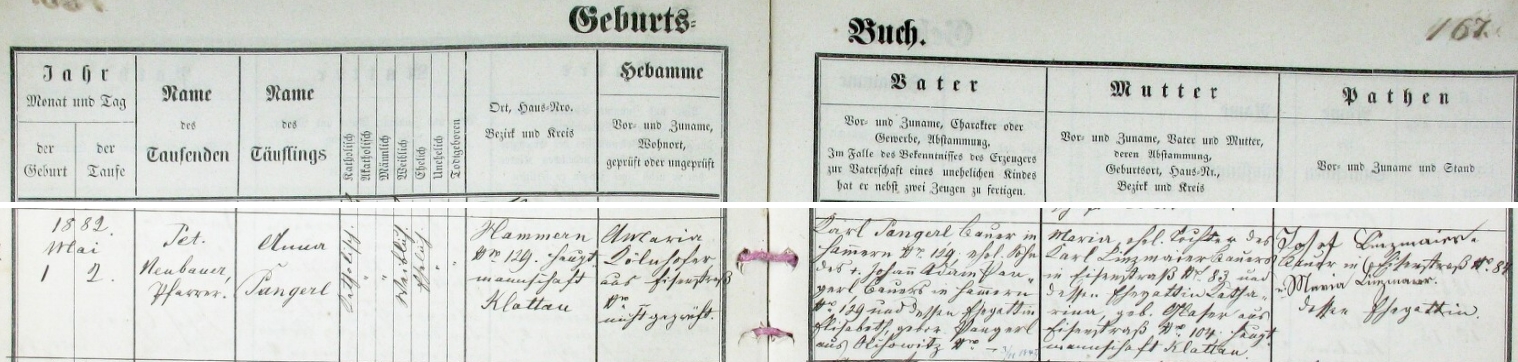 Geburts-
Buch.
167.
Jahr
Monat und Tag
der
Geburt
der
Taufe
Name
des
Taufenden
Name
des
Täuflings
Katholisch
Akatholisch
Männlich
Weiblich
Ehelich
Unehelich
Todtgeboren
Ort, Haus-Nro.
Bezirk und Kreis
Hebamme
Vor- und Zuname,
Wohnort,
geprüft oder ungeprüft
Vater
Vor- und Zuname, Charakter oder
Gewerbe, Abstammung,
Im Falle des Bekenntnisses des Erzeugers
zur Vaterschaft eines unehelichen Kindes
hat er nebst zwei Zeugen zu fertigen.
Mutter
Vor- und Zuname, Vater und Mutter,
deren Abstammung,
Geburtsort, Haus-Nr.,
Bezirk und Kreis
Pathen
Vor- und Zuname und Stand
1882.
Mai
1 2.
Pet.
Neubauer,
Pfarrer.
Anna
Pangerl
Katholisch
"
"
Weiblich
Ehelich
"
"
Hammern
No 129. Haupt-
mannschaft
Klattau
Maria
aus Eisenstraß
No
nicht geprüft.
Karl Pangerl Bauer in
Hammern No 129, ehel. Sohn
des + Johann Adam Pan-
gerl Bauers in Hammern
No 129 und dessen Ehegattin
Elisabeth, geber. Pangerl
aus No –
Maria, ehel. Tochter des
Karl Linzmaier Bauers
in Eisenstraß No 83 und
dessen Ehegattin Katha-
rina, geb. Glaser aus
Eisenstraß No 104. Haupt-
mannschaft Klattau.
Josef Linzmaier
Bauer in Eisenstraß No 84
u. Maria Linzmaier.
dessen Ehegattin.